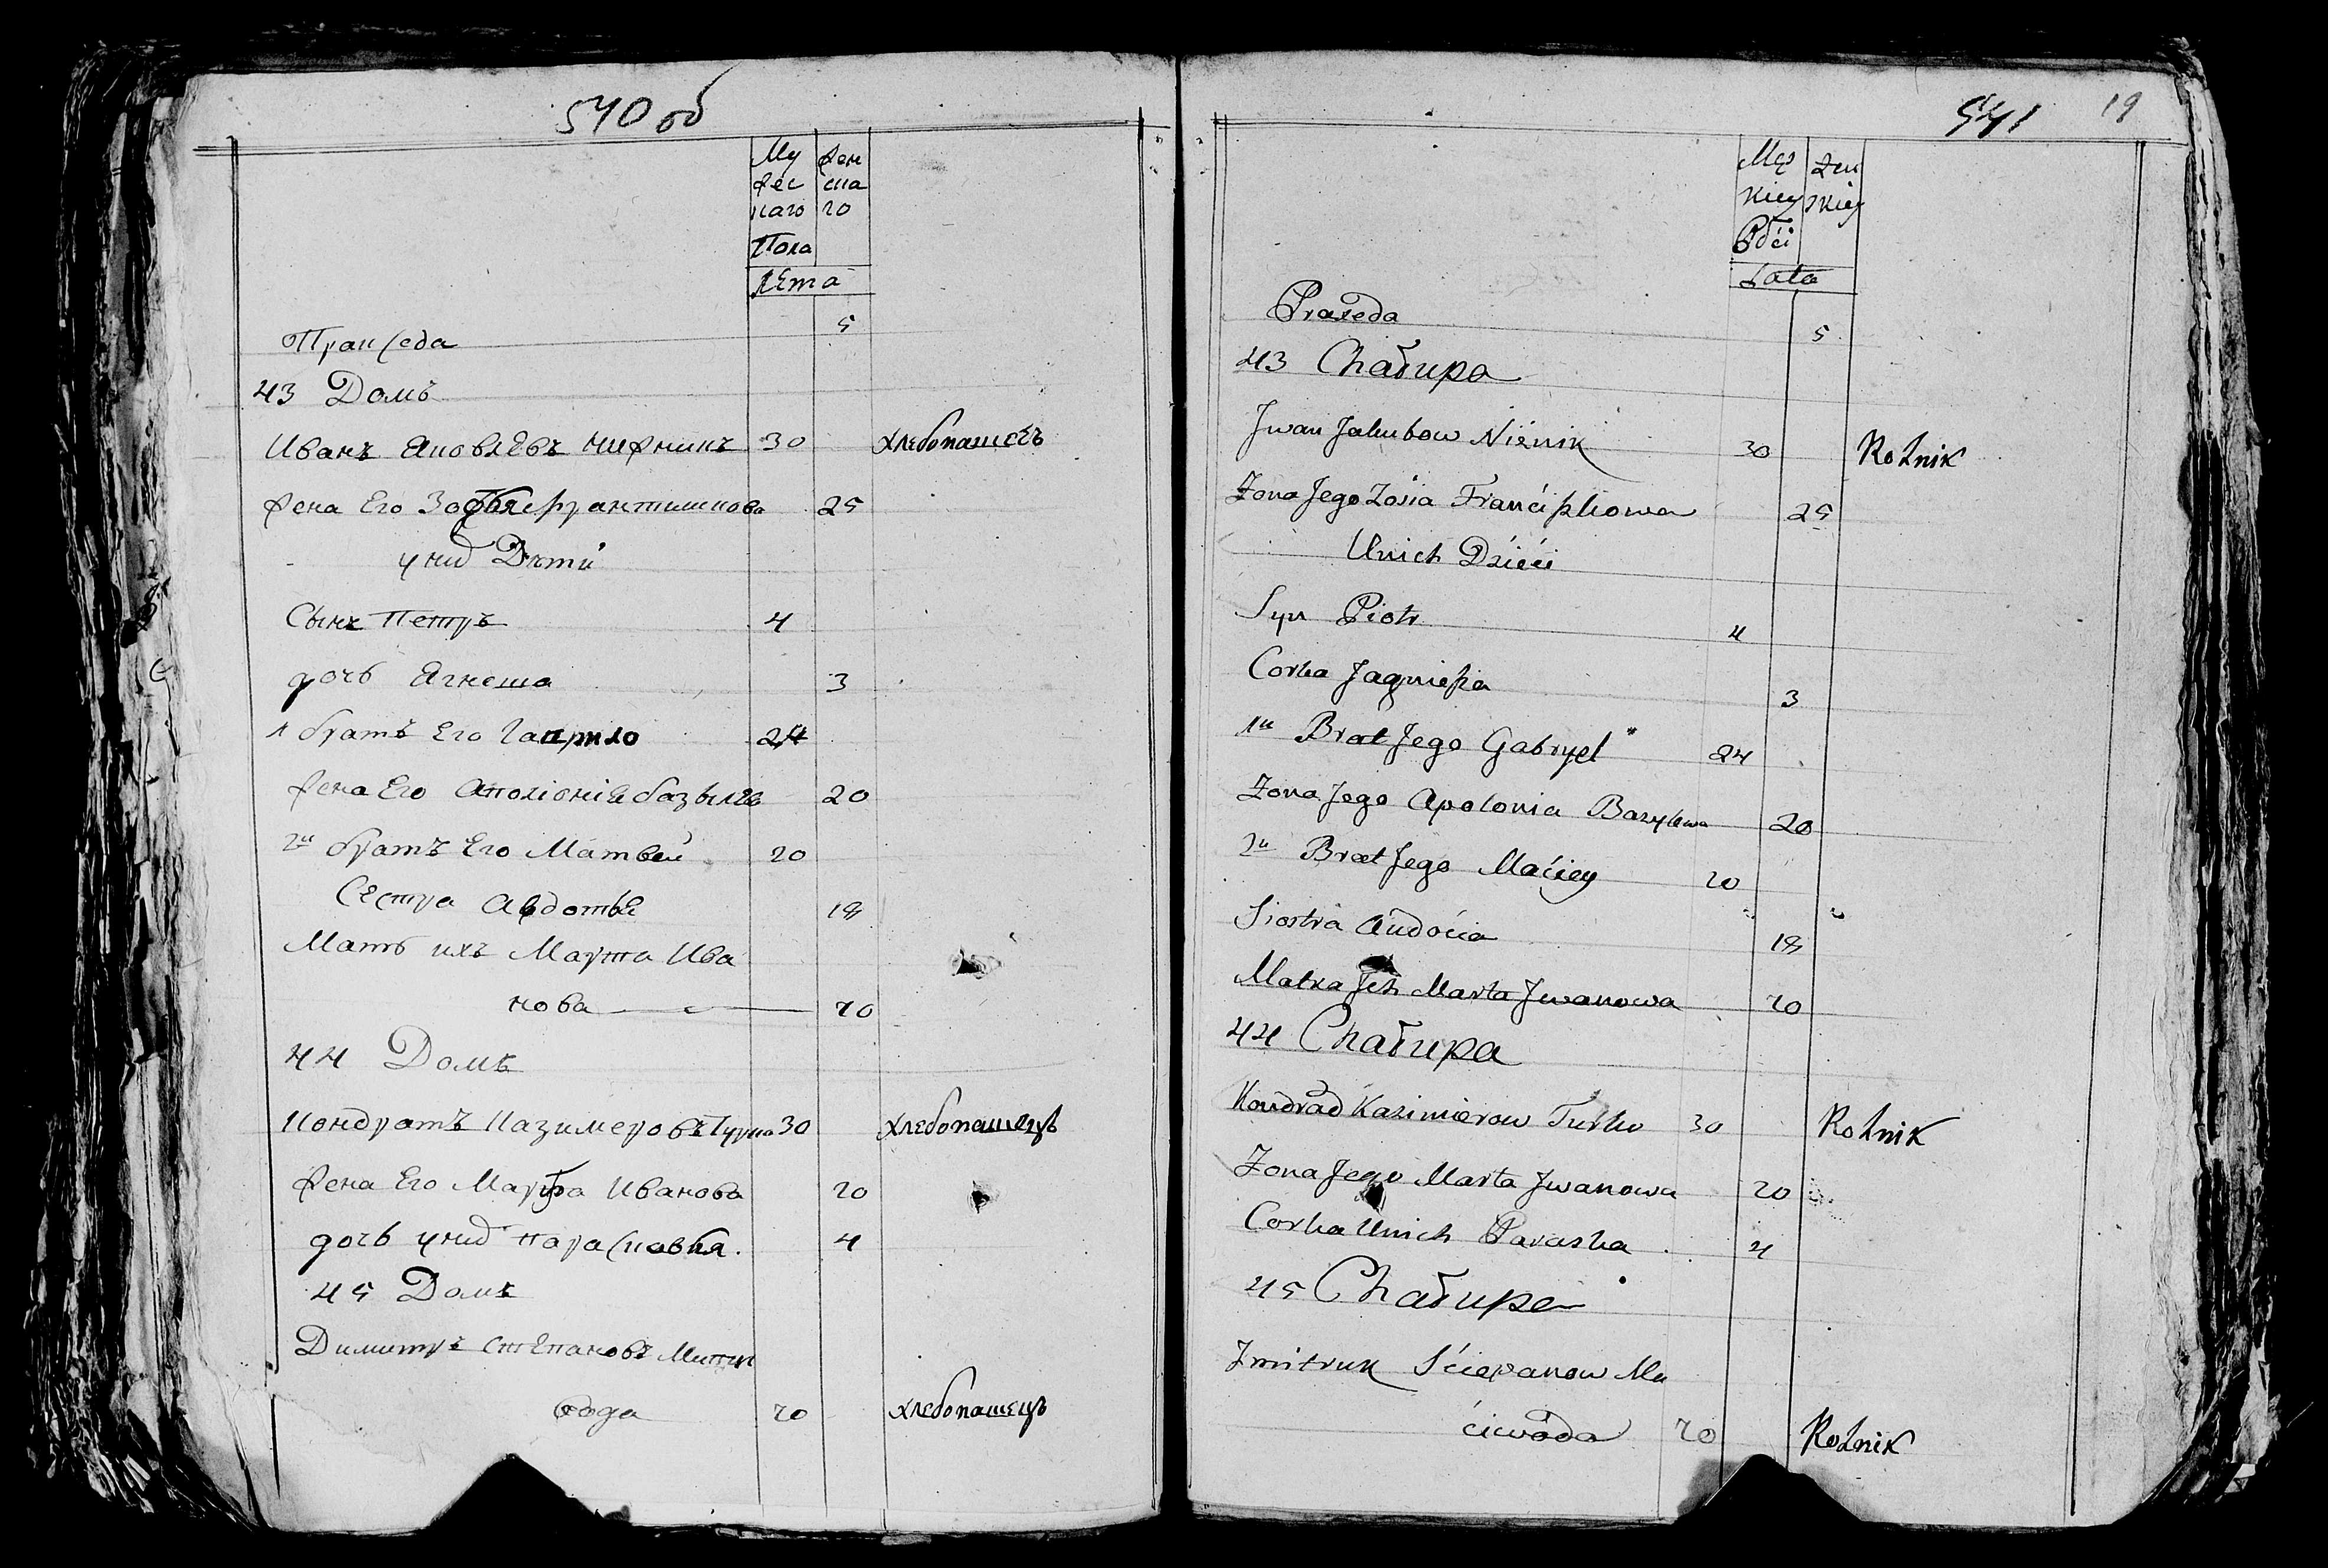 540 об
Му Жен
жес ска
каго го
Пола
лЕта
Пракседа 5
43 Домъ
Иванъ Яковлевъ Нижникъ 30 хлебопашецъ
Жена Его Зофья Франтишкова 25
у них Дети
Сынъ Петръ 4
дочь Ягнеша 3
1 братъ Его Гаврило 24
Жена Его Аполіонія базылева 20
2й братъ Его Матвей 20
Сестра Авдотья 18
Мать ихъ Марта Ива
нова 70
44 Домъ
Кондратъ Казимеровъ Турко 30 хлебопашецъ
Жена Его Марта Иванова 20
дочь у них Парасковья 4
45 Домъ
Димитръ Степановъ
70 хлебопашецъ
541 19
Męs Żeń
kiey skiey
Płci
Lata
Praxeda 5
43 Chałupa
Jwan Jakubow Niżnik 30 Rolnik
Żona Jego Zosia Franciszkowa 25
Unich Dzieći
Syn Piotr 4
Corka Jagniesza 3
1n Brat Jego Gabryel 24
Żona Jego Apolonia Bazylewa 20
2n Brat Jego Maćiey 20
Siostra Audocia 18
Matka Jch Marta Jwanowa 70
44 Chałupa
Kondrad Kazimierow Turko 30 Rolnik
Żona Jego Marta Jwanowa 20
Corka Unich Paraska 4
45 Chałupa
Zmitruk Sciepanow Mu
ciwoda 70 Rolnik